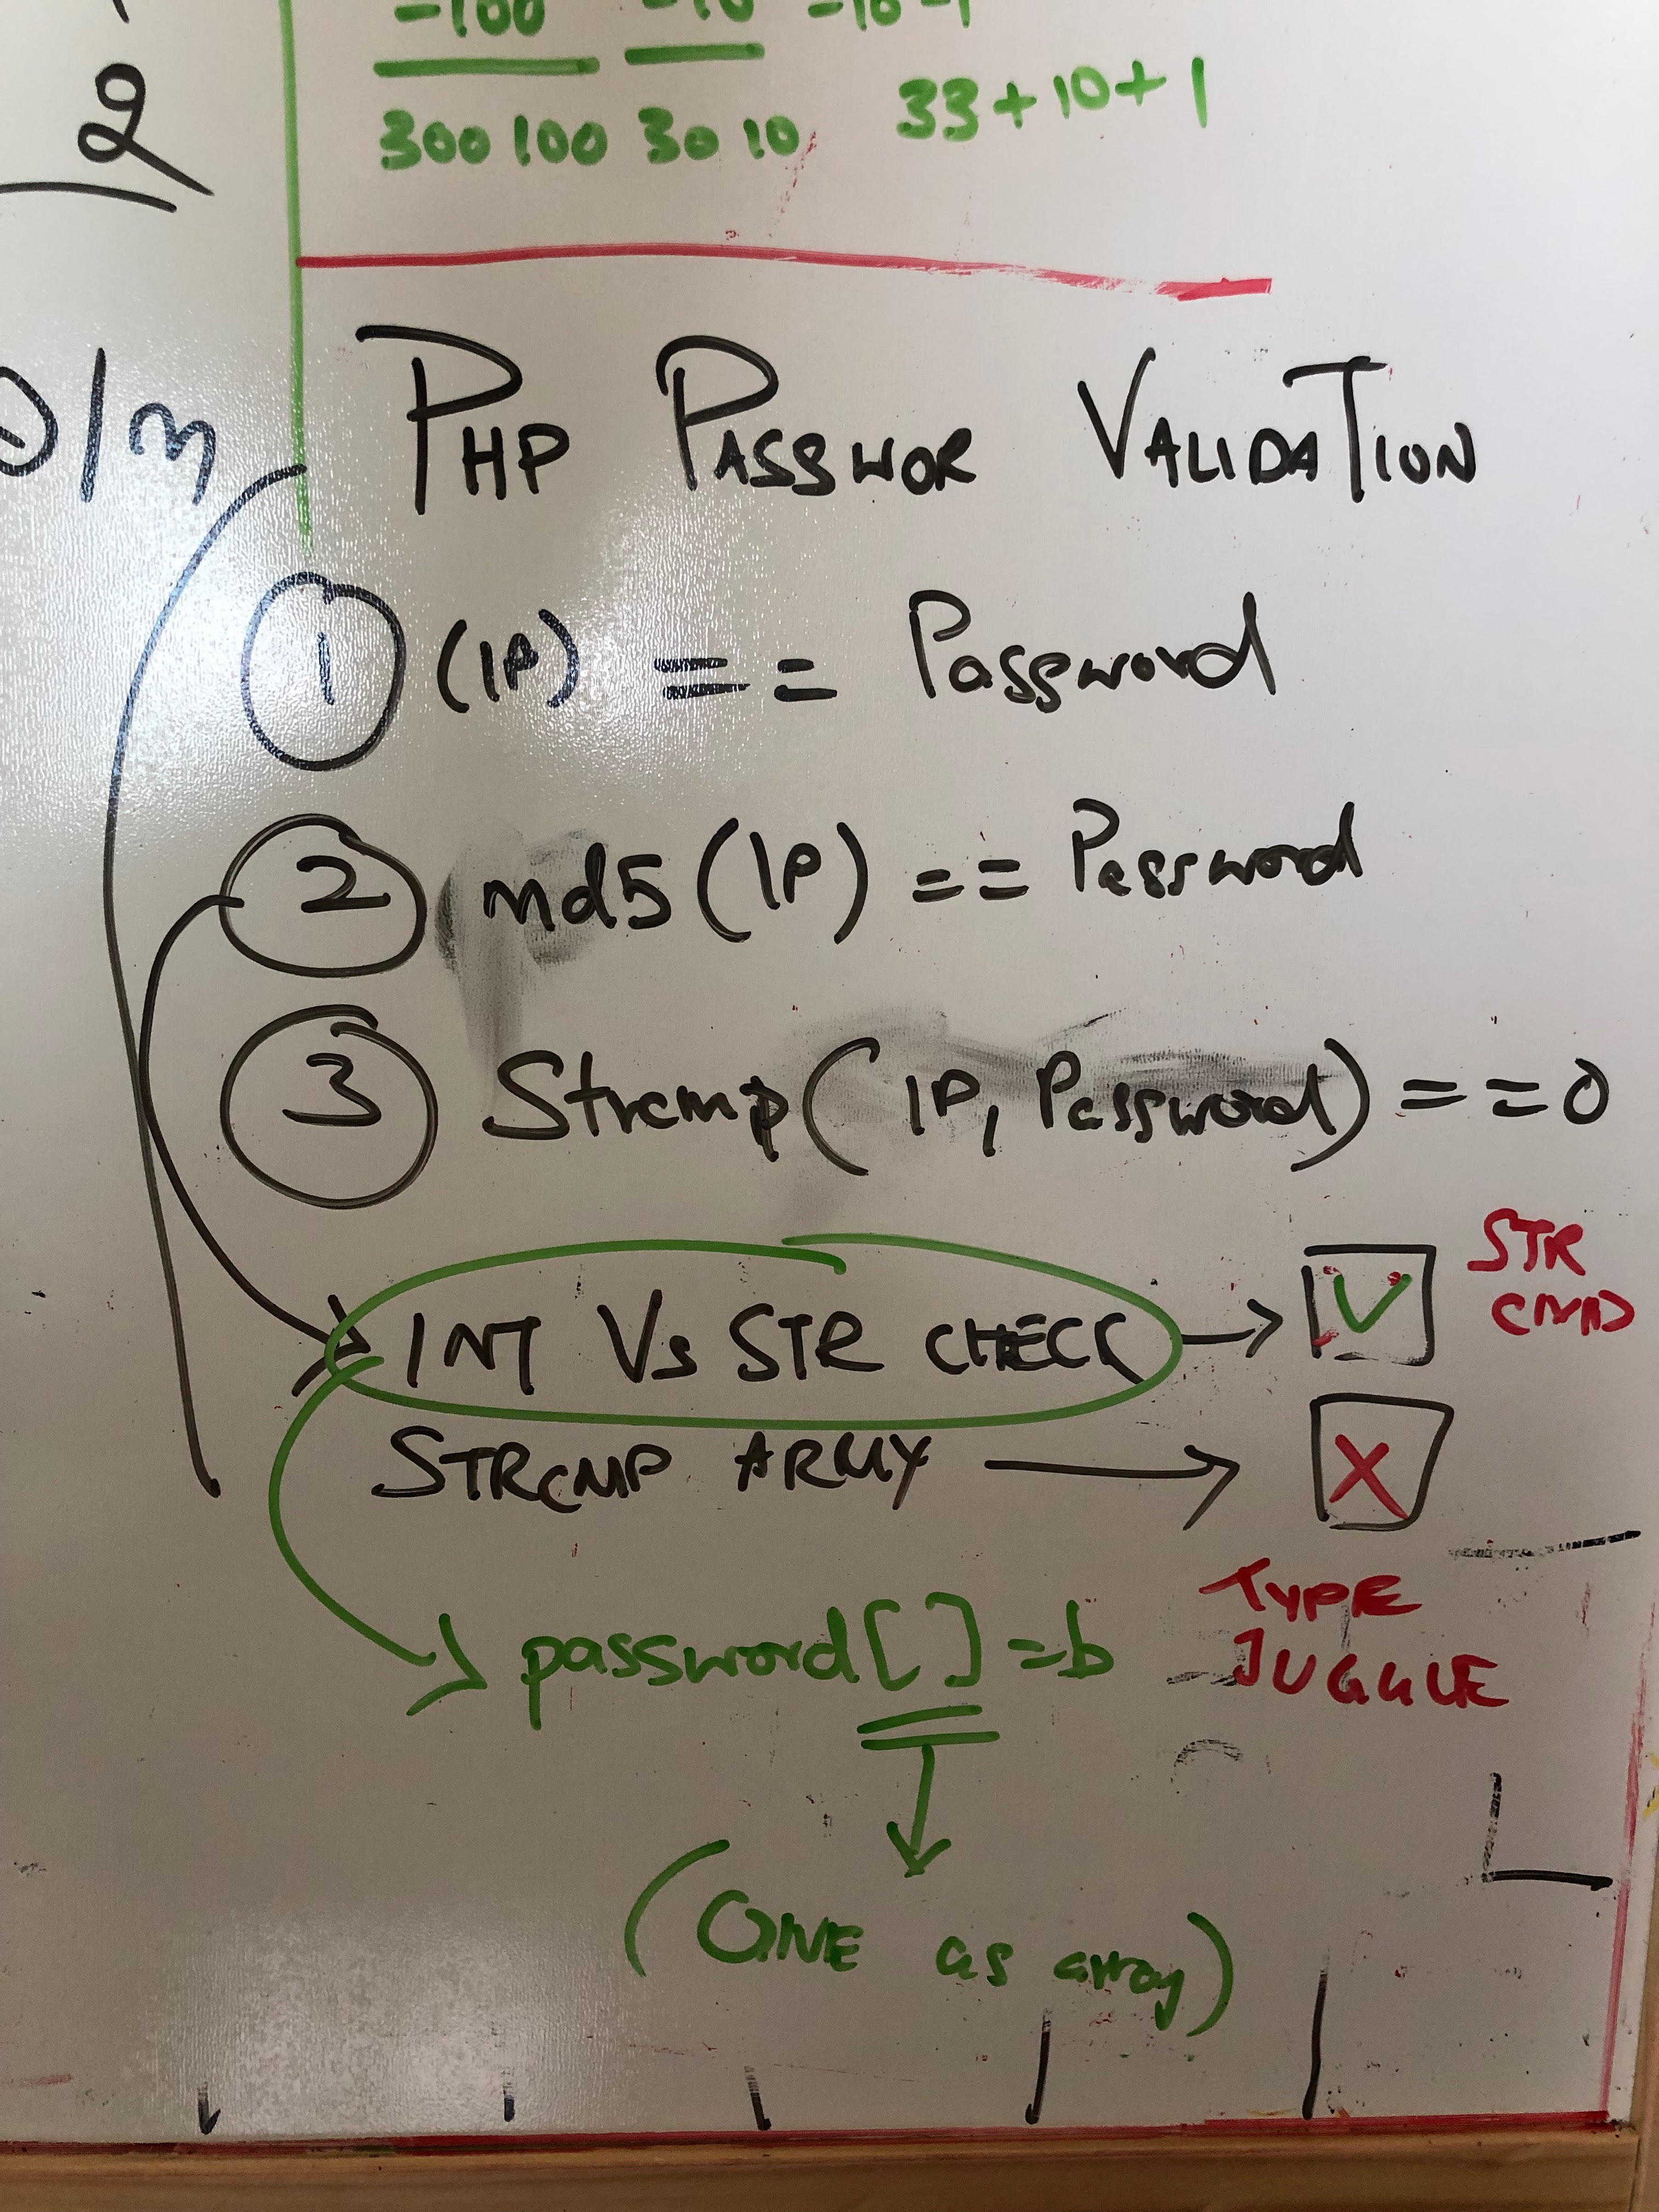 -100 -10 -10 -1
2
300 100 30 10 33 + 10 + 1
PHP PASSWOR VALIDATION
1 (IP) == Password
2 md5 (IP) == Password
3 Strcmp( IP, Password) == =0
INT Vs STR CHECK → V STR CMP
STRCMP ARRAY → X
password[] = b TYPE JUGGLE
(ONE as array)